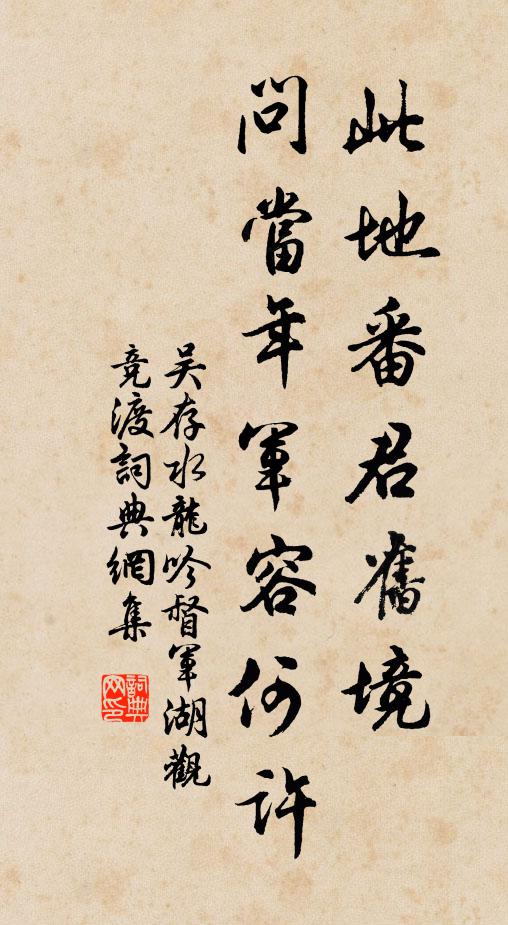 此地番君舊境
問當年軍容何許
吴存水龍吟督軍湖觀
競渡詞典網集
詞典網印